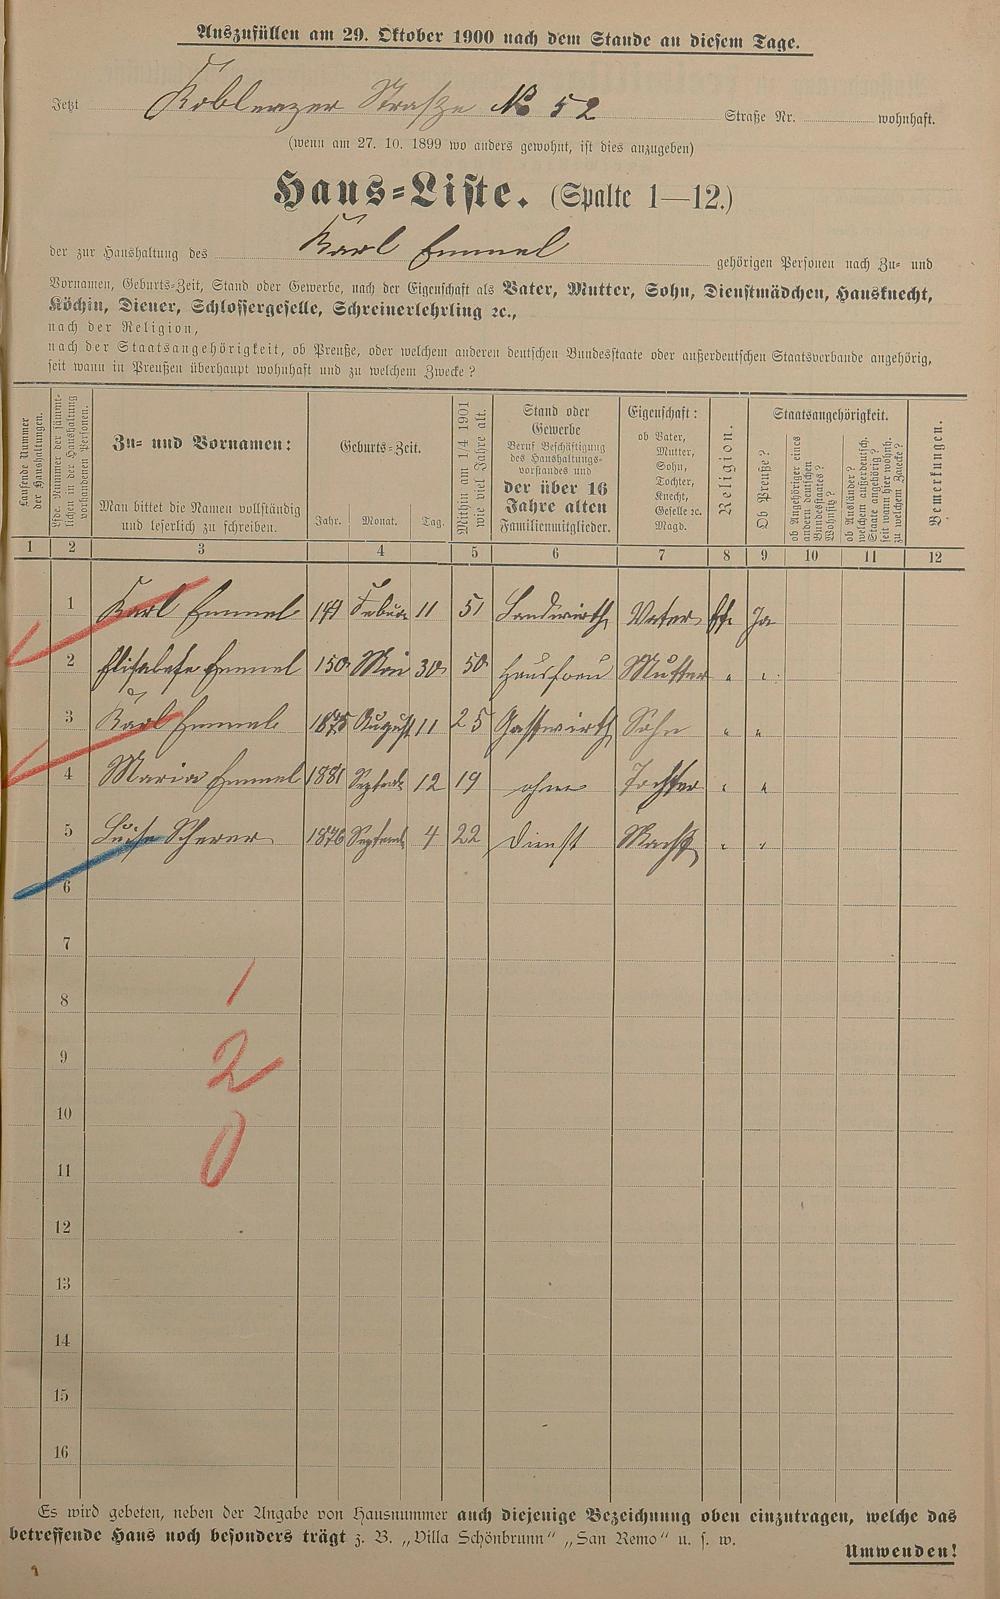 Auszufüllen am 29. Oktober 1900 nach dem Stande an diesem Tage.
Jetzt Koblenzer Straße No 52 Straße Nr. wohnhaft.
(wenn am 27. 10. 1899 wo anders gewohnt, ist dies anzugeben)
Haus-Liste. (Spalte 1—12.)
der zur Haushaltung des Karl Emmel gehörigen Personen nach Zu- und
Vornamen, Geburts-Zeit, Stand oder Gewerbe, nach der Eigenschaft als Vater, Mutter, Sohn, Dienstmädchen, Hausknecht,
Köchin, Diener, Schlossergeselle, Schreinerlehrling ꝛc.,
nach der Religion,
nach der Staatsangehörigkeit, ob Preuße, oder welchem anderen deutschen Bundesstaate oder außerdeutschen Staatsverbande angehörig,
seit wann in Preußen überhaupt wohnhaft und zu welchem Zwecke?
Laufende Nummer
der Haushaltungen.
Lfde. Nummer der sämmt-
lichen in der Haushaltung
vorhandenen Personen.
Zu- und Vornamen:
Man bittet die Namen vollständig
und leserlich zu schreiben.
Geburts-Zeit.
Jahr. Monat. Tag.
Mithin am 1/4 1901
wie viel Jahre alt.
Stand oder
Gewerbe
Beruf Beschäftigung
des Haushaltungs-
vorstandes und
der über 16
Jahre alten
Familienmitglieder.
Eigenschaft:
ob Vater,
Mutter,
Sohn,
Tochter,
Knecht,
Geselle ꝛc.
Magd.
Religion.
Staatsangehörigkeit.
Ob Preuße?
ob Angehöriger eines
andern deutschen
Bundesstaates?
Wohnsitz?
ob Ausländer?
welchem außerdeutsch.
Staate angehörig?
seit wann hier wohnh.
zu welchem Zwecke?
Bemerkungen.
1 2 3 4 5 6 7 8 9 10 11 12
1 Karl Emmel Februar 11 51 Landwirth Vater Ja
2 Elisabete Emmel 150 Mai 30 50 Hausfrau Mutter " "
3 Karl Emmel 1875 August 11 25 Gastwirth Sohn " "
4 Maria Emmel 1881 12 19 ohne Tochter " "
5 Luise Scherer 1876 4 22 Dienst " "
6
7
8 1
9 2
10
11 0
12
13
14
15
16
Es wird gebeten, neben der Angabe von Hausnummer auch diejenige Bezeichnung oben einzutragen, welche das
betreffende Haus noch besonders trägt z. B. „Villa Schönbrunn“ „San Remo“ u. s. w.
Umwenden!